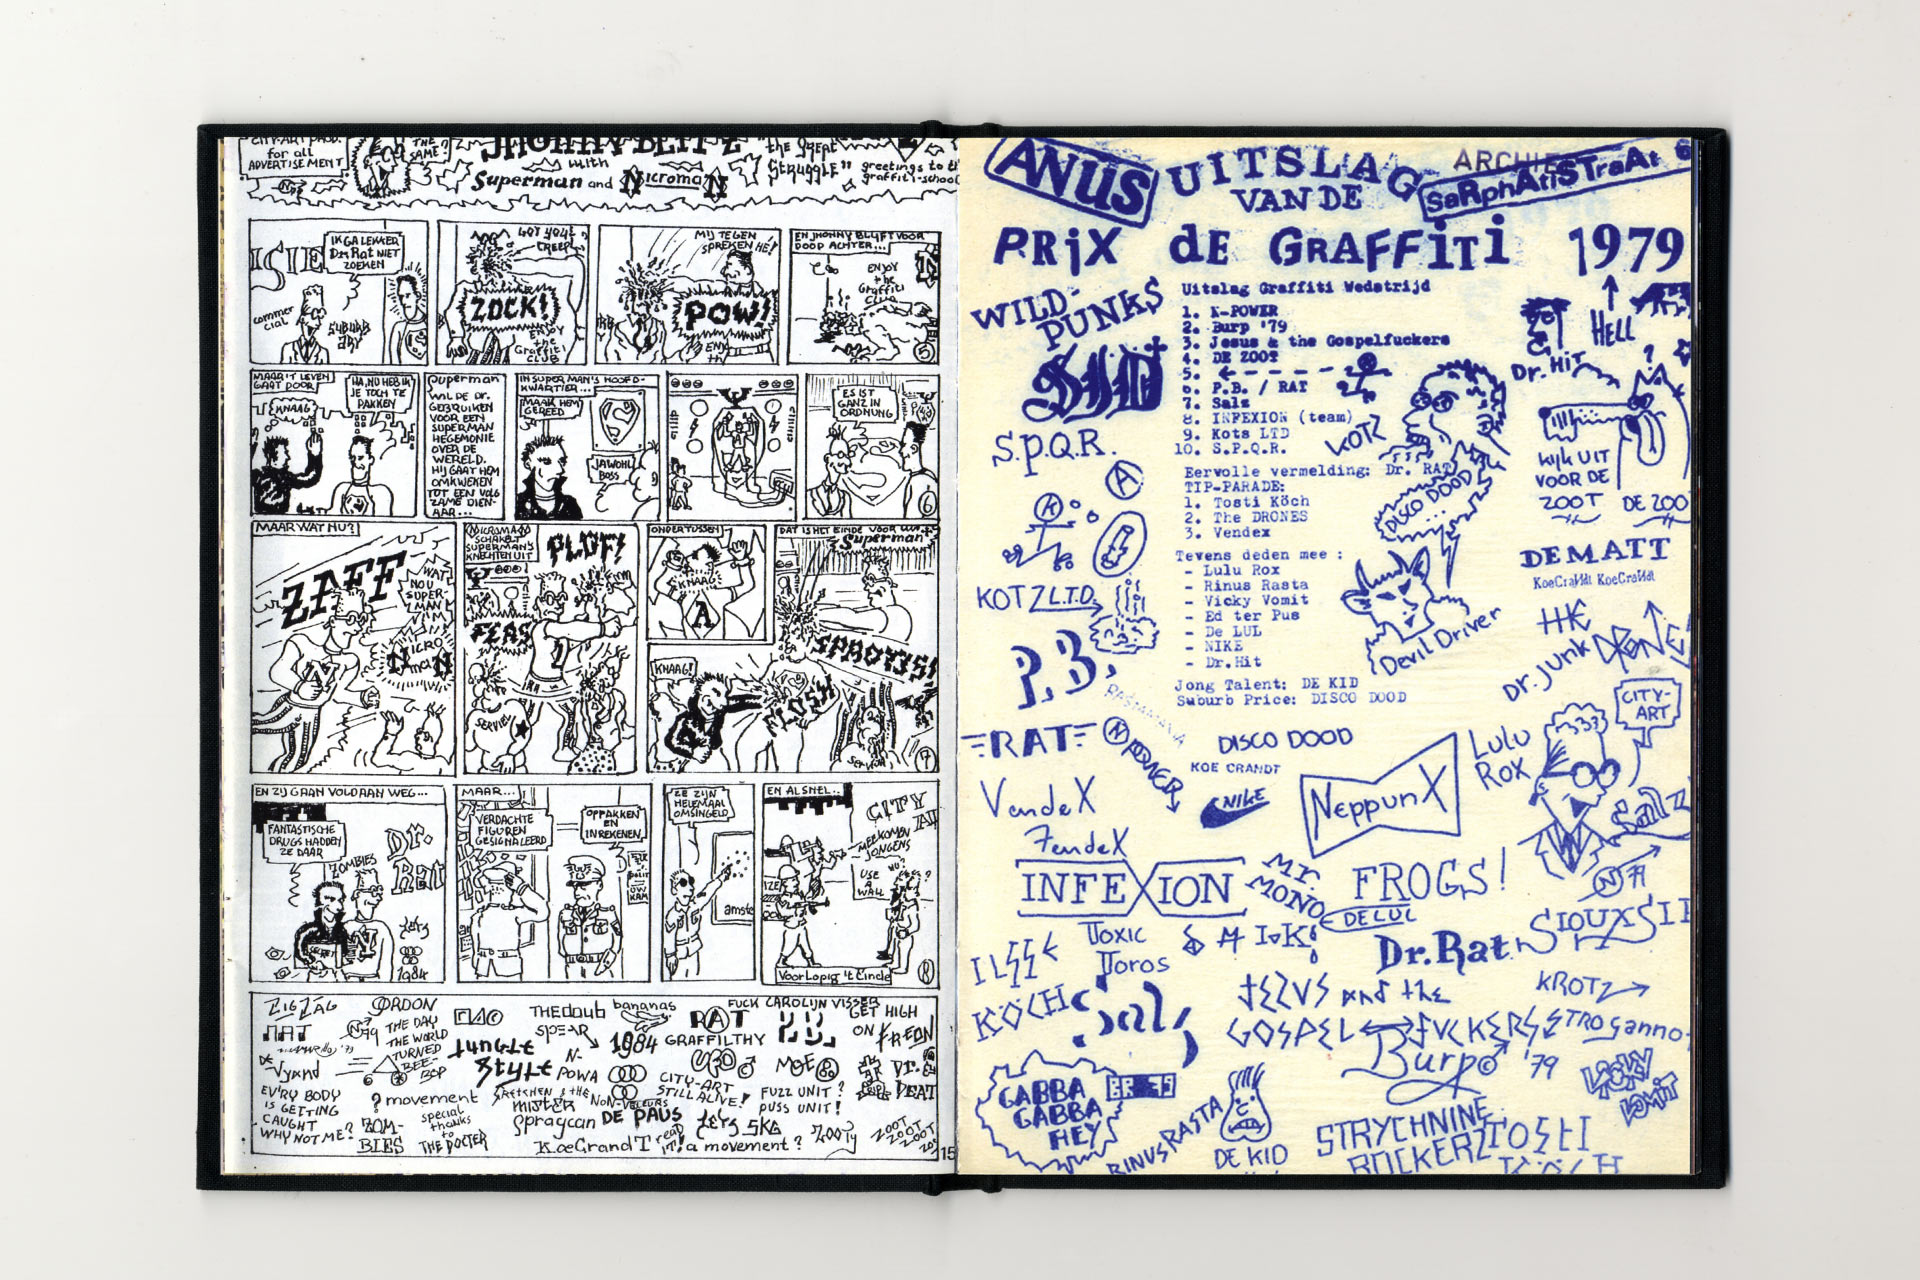 CITY-ART PROD.
for all
ADVERTISEMENT
THE
SAME?
JHONNY BLITZ
with
Superman and Nicroman
"the great
Struggle"
greetings to the
graffiti-school
IK GA LEKKER
Dr. Rat NIET
ZOEKEN
commer
cial
SUBURB
ART
GOT YOU!
CREEP!
ZOCK!
ENJOY
the
Graffiti
CLUB
MIJ TEGEN
SPREKEN HÈ!
POW!
EN JHONNY BLIJFT VOOR
DOOD ACHTER...
ENJOY
the
Graffiti
CLUB
5
MAAR 'T LEVEN
GAAT DOOR
KNAAG
HA, NU HEB IK
JE TOCH TE
PAKKEN
Superman
WIL DE Dr.
GEBRUIKEN
VOOR EEN
SUPERMAN
HEGEMONIE
OVER DE
WERELD.
HIJ GAAT HEM
OMKWEKEN
TOT EEN VOLG
ZAME DIEN-
AAR...
IN SUPERMAN'S HOOFD-
KWARTIER...
MAAK HEM
GEREED
JAWOHL
BOSS
ES IST
GANZ IN
ORDNUNG
6
MAAR WAT NU?
ZAFF
WAT
NOU
SUPER-
MAN
NICRO
maN
NICROMAN
SCHAKELT
SUPERMAN'S
KNECHTEN UIT
PLOF!
FERS
SERVIEN
ONDERTUSSEN
KNAAG
A
KNAAG!
FLOSH
DAT IS HET EINDE VOOR
Superman
SPROTIS!
7
EN ZIJ GAAN VOLDAAN WEG...
FANTASTISCHE
DRUGS HADDEN
ZE DAAR
ZOMBIES
Dr.
Rat
1984
MAAR...
VERDACHTE
FIGUREN
GESIGNALEERD
OPPAKKEN
EN
INREKENEN
ZE ZIJN
HELEMAAL
OMSINGELD
amste
EN AL SNEL..
CITY
MEEKOMEN
JONGENS
USE
A
WALL
Voorlopig 't Einde
8
ZIGZAG
GORDON
THE DAY
THE WORLD
TURNED
BEE-
BOP
THE doub
bananas
SPEAR
FUCK CAROLIJN VISSER
GET HIGH
ON FREON
RAT
GRAFFILTHY
P.B.
1984
JUNGLE
STYLE
N-
POWA
UFO
MOE
Dr.
DEAT
Vyand
CITY-ART
STILL ALIVE!
FUZZ UNIT?
PUSS UNIT!
EV'RY BODY
IS GETTING
CAUGHT
WHY NOT ME?
? movement
special
thanks
to
THE DOCTER
ZOM-
BIES
MISTER
Spraycan
NON-VALEURS
DE PAUS
SKG
KoeGrandT
read
it!
a movement?
ZOOTy
ZOOT
ZOOT
15
ANUS
UITSLAG
VAN DE
ARCHIE
SaRphAtiSTraAt 6
PRiX dE GRAFFiTi 1979
Uitslag Graffiti Wedstrijd
1. K-POWER
2. Burp '79
3. Jesus & the Gospelfuckers
4. DE ZOOT
5. <- - - - - -
6. P.B. / RAT
7. Salz
8. INFEXION (team)
9. Kots LTD
10. S.P.Q.R.
Eervolle vermelding: Dr. RAT
TIP-PARADE:
1. Tosti Köch
2. The DRONES
3. Vendex
Tevens deden mee :
- Lulu Rox
- Rinus Rasta
- Vicky Vomit
- Ed ter Pus
- De LUL
- NIKE
- Dr.Hit
Jong Talent: DE KID
Suburb Price: DISCO DOOD
WILD-
PUNKS
SID
S.P.Q.R.
A
K
KOTZ L.T.D.
P.B.
RASTAMANNA
=RAT=
N POWER
KOTZ
DISCO DOOD
...
Devil Driver
HELL
Dr. Hit
?
kijk UIT
VOOR DE
ZOOT
DE ZOO
DE MATT
KoeCraNdt KoeCraNdt
HK
DRONE
Dr. Junk
CITY-
ART
DISCO DOOD
KOE CRANDT
NIKE
NeppunX
LULU
ROX
Salz
VendeX
FendeX
INFEXION
Mr.
MONO
FROGS!
DE LUL
N 79
SIOUXSIE
ILSSE
TOXIC
TOROS
Dr. Rat
KÖCH
Salz
JEZUS and the
GOSPEL FUCKERS
KROTZ
STROganno
Burp '79
GABBA
GABBA
HEY
BB 79
RINUS RASTA
DE KID
VICKY
VOMIT
STRYCHNINE
ROCKERZ
TOSTI
KÖCH